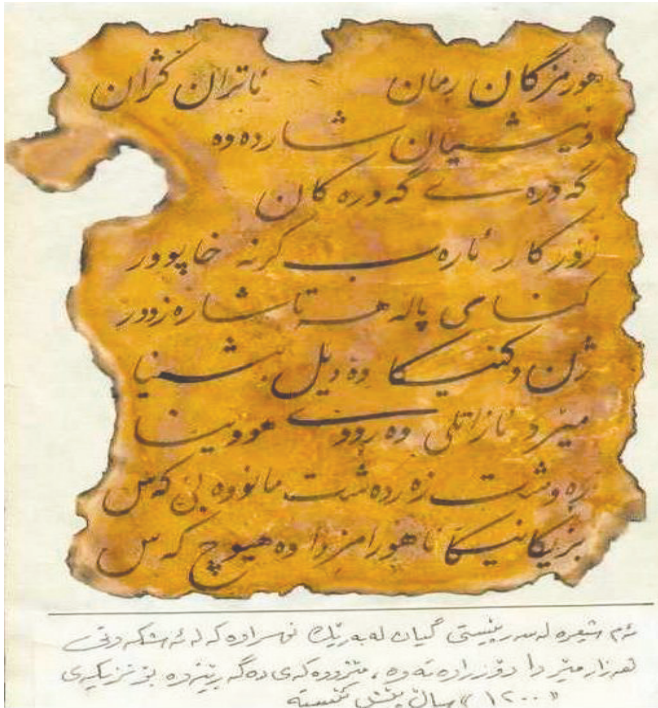 هورمزگان رمان ئاتران کژان
وێشیان شاردەوە
گەورەی گەورەکان
زۆرکار ئارەب کرنە خاپوور
گنای پالە هەتا شارەزوور
ژن و کنیکا وە دیل بشینا
مێرد ئازاتلی وە رووی هووینا
رەوشت زەردەشت مانووە بێ کەس
بزیکا نیکا ئاهۆرامزدا وە هیوچ کەس
ئەم شیعرە لەسەر پێستی گیان لەبەرێک نوسراوە کە لە ئەشکەوتی
هەزار مێردا دۆزراوەتەوە، مێژووەکەی دەگەڕێتەوە بۆ نزیکەی
«١٢٠٠» ساڵ پێش ئێستە